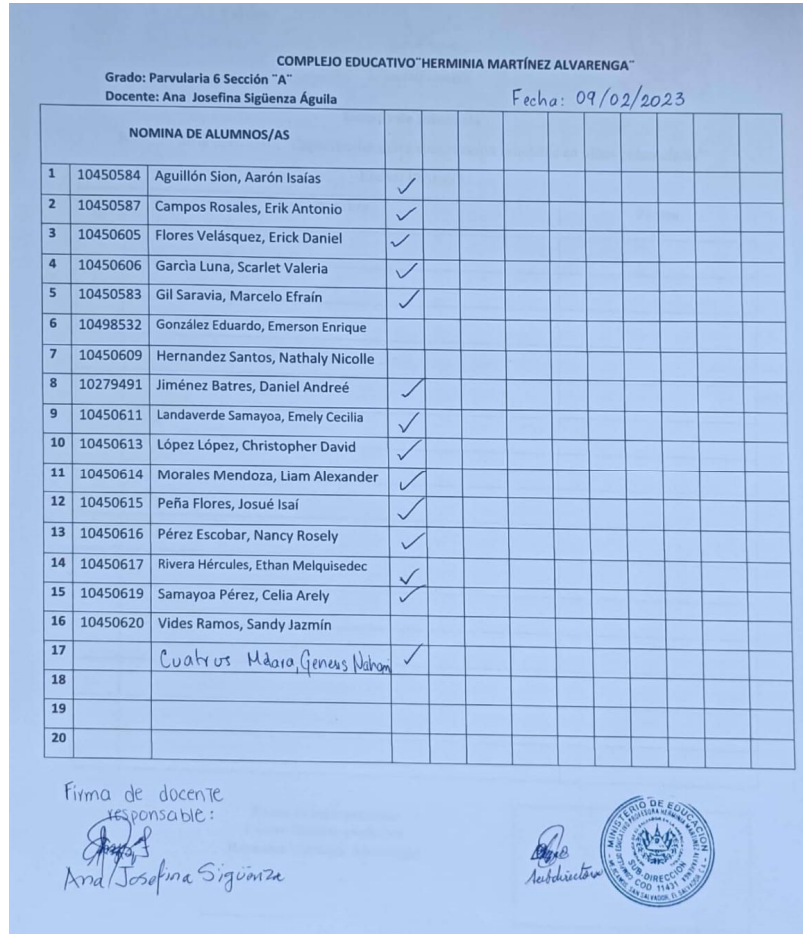 COMPLEJO EDUCATIVO¨HERMINIA MARTÍNEZ ALVARENGA¨
Grado: Parvularia 6 Sección ¨A¨
Docente: Ana Josefina Sigüenza Águila
Fecha: 09/02/2023
NOMINA DE ALUMNOS/AS
1 10450584 Aguillón Sion, Aarón Isaías ✓
2 10450587 Campos Rosales, Erik Antonio ✓
3 10450605 Flores Velásquez, Erick Daniel ✓
4 10450606 Garcìa Luna, Scarlet Valeria ✓
5 10450583 Gil Saravia, Marcelo Efraín ✓
6 10498532 González Eduardo, Emerson Enrique
7 10450609 Hernandez Santos, Nathaly Nicolle
8 10279491 Jiménez Batres, Daniel Andreé ✓
9 10450611 Landaverde Samayoa, Emely Cecilia ✓
10 10450613 López López, Christopher David ✓
11 10450614 Morales Mendoza, Liam Alexander ✓
12 10450615 Peña Flores, Josué Isaí ✓
13 10450616 Pérez Escobar, Nancy Rosely ✓
14 10450617 Rivera Hércules, Ethan Melquisedec ✓
15 10450619 Samayoa Pérez, Celia Arely ✓
16 10450620 Vides Ramos, Sandy Jazmín
17 ✓
18
19
20
Firma de docente
responsable:
Ana Josefina Sigüenza
Subdirectora
MINISTERIO DE EDUCACION
SUB-DIRECCION
COD 11431
SAN SALVADOR, EL SALVADOR, C.A.